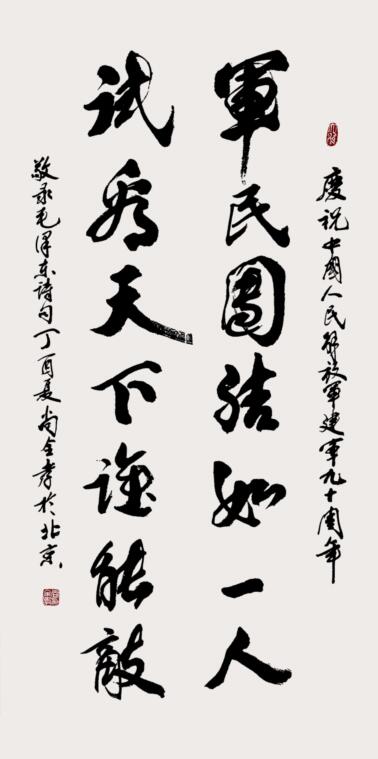 慶祝中國人民解放軍建軍九十周年
軍民團結如一人
試看天下誰能敵
敬录毛澤东詩句丁酉夏尚全孝於北京